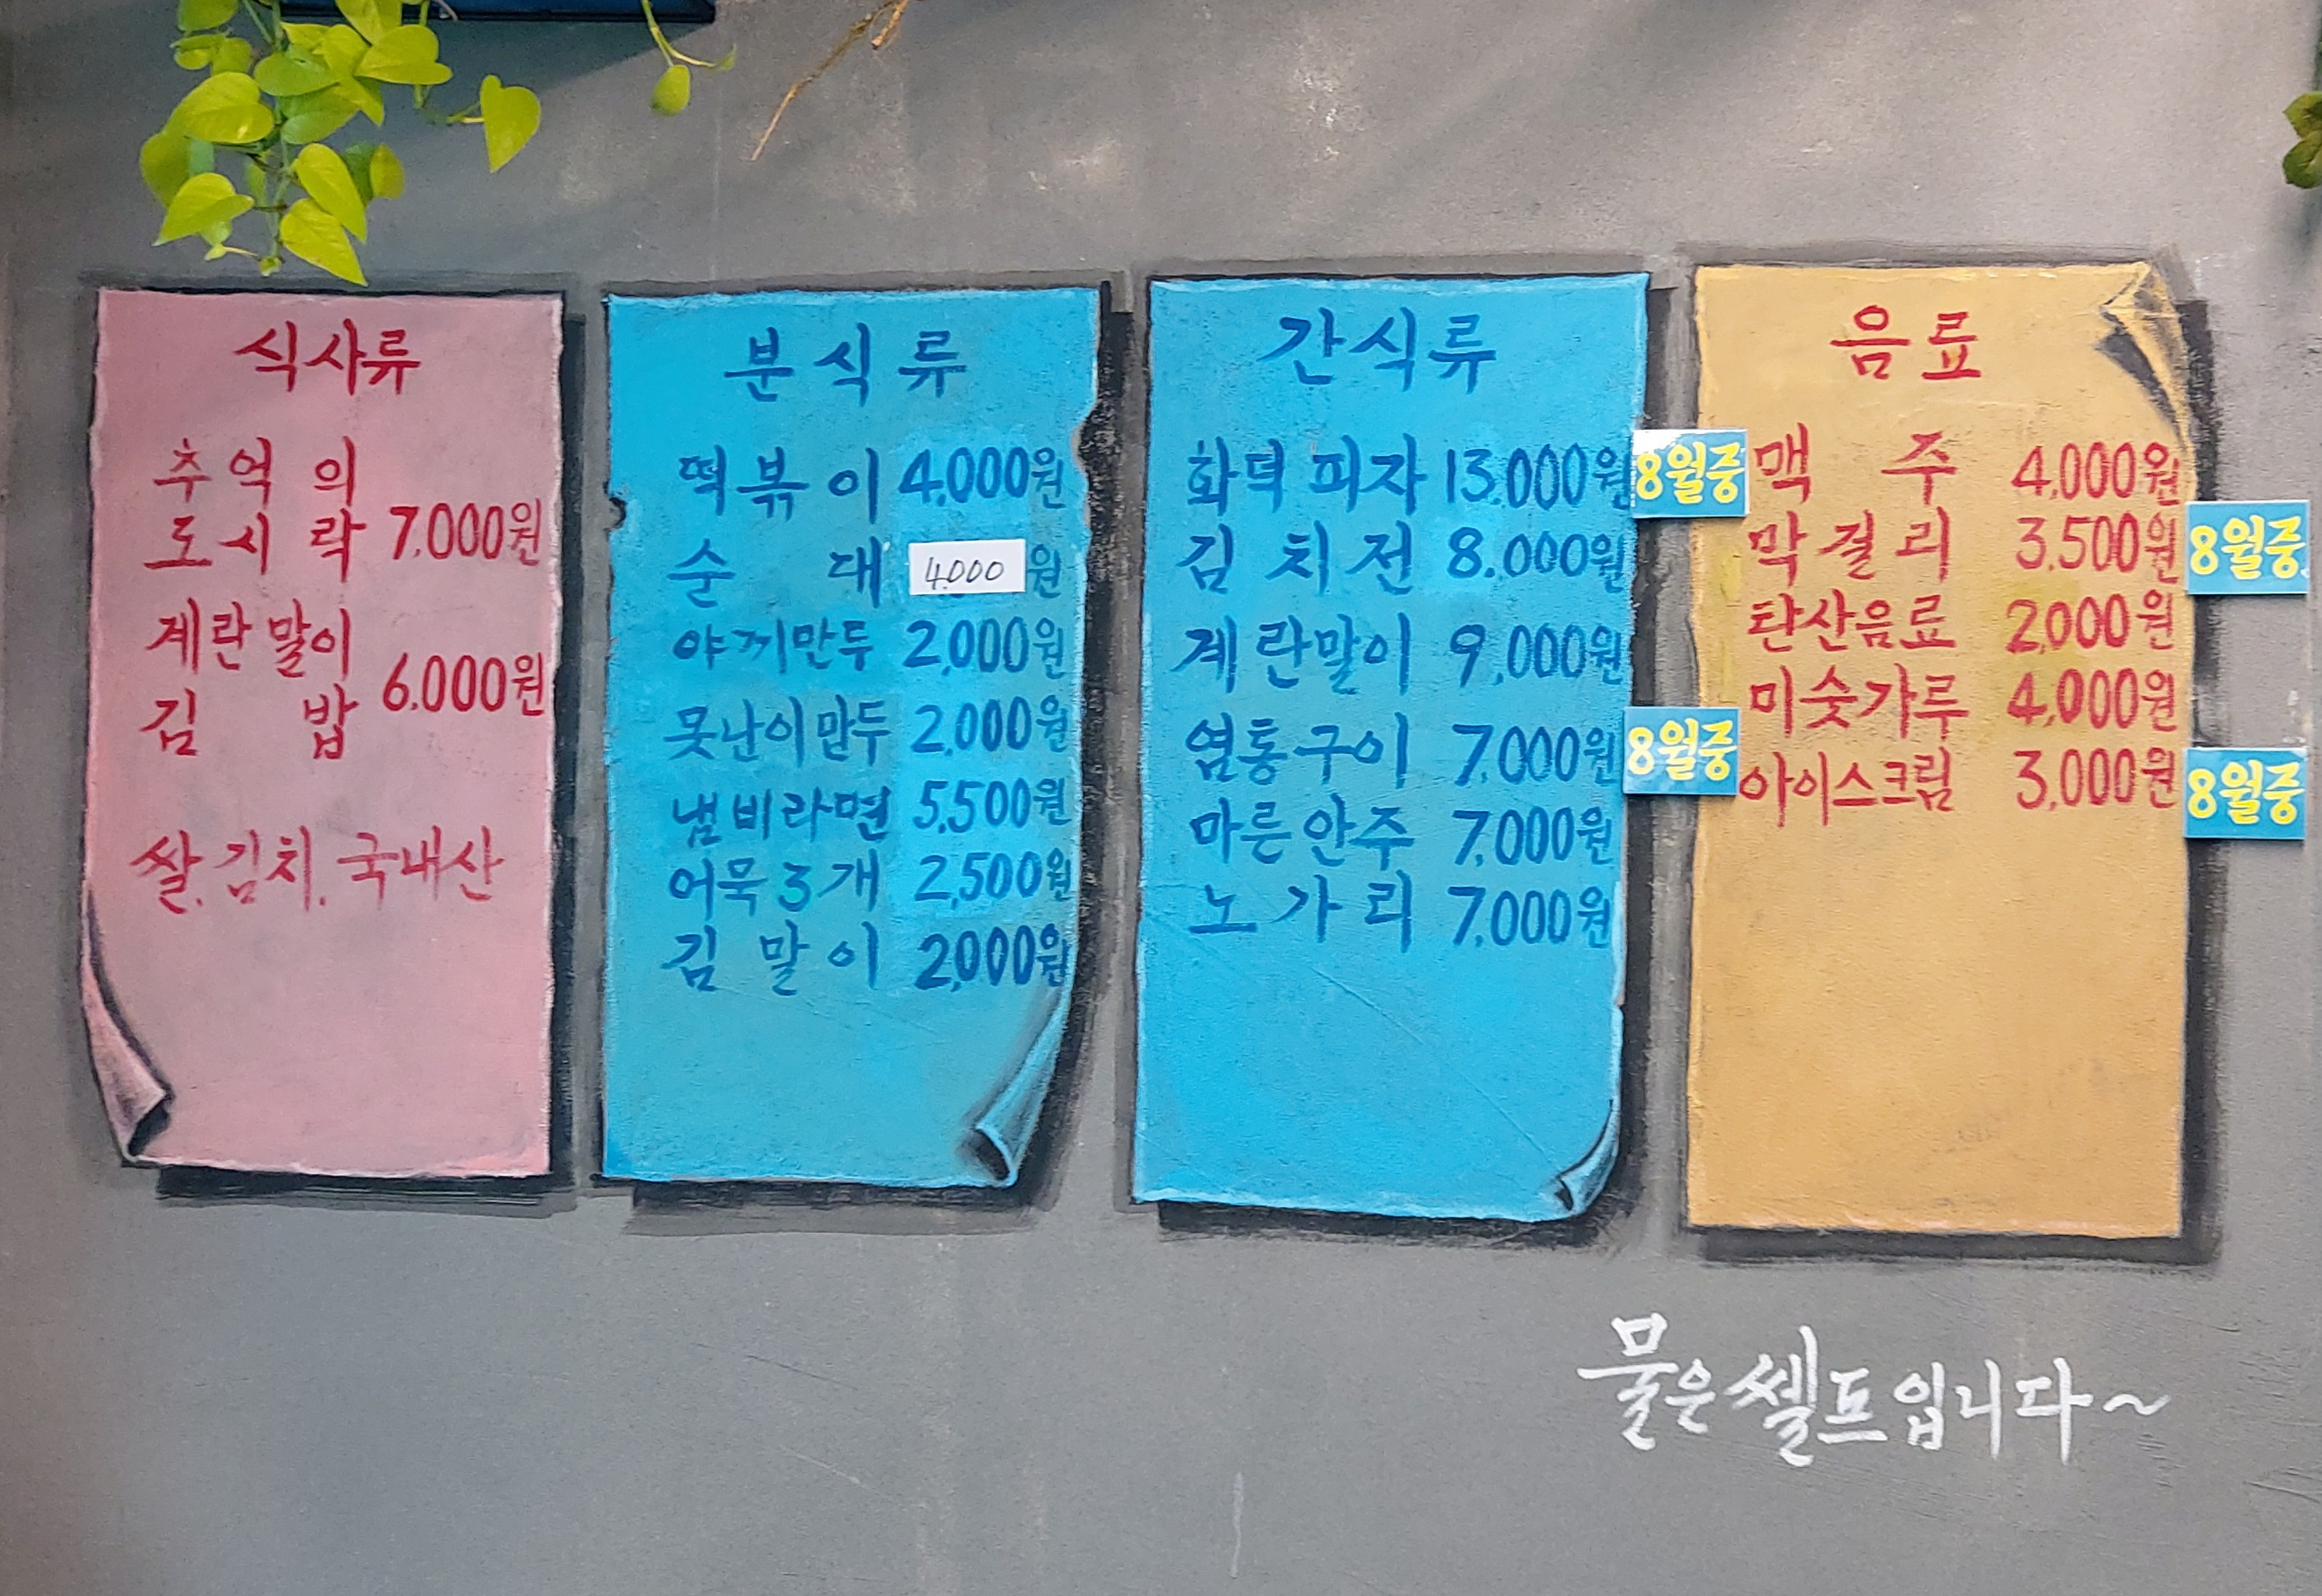 식사류
추억의
도시락 7,000원
계란말이
김밥 6,000원
쌀.김치.국내산
분식류
떡볶이 4,000원
순대 4,000원
야끼만두 2,000원
못난이만두 2,000원
냄비라면 5,500원
어묵3개 2,500원
김말이 2,000원
간식류
화덕피자 13,000원 8월중
김치전 8,000원
계란말이 9,000원
염통구이 7,000원 8월중
마른안주 7,000원
노가리 7,000원
음료
맥주 4,000원
막걸리 3,500원 8월중
탄산음료 2,000원
미숫가루 4,000원
아이스크림 3,000원 8월중
물은 쎌프입니다~